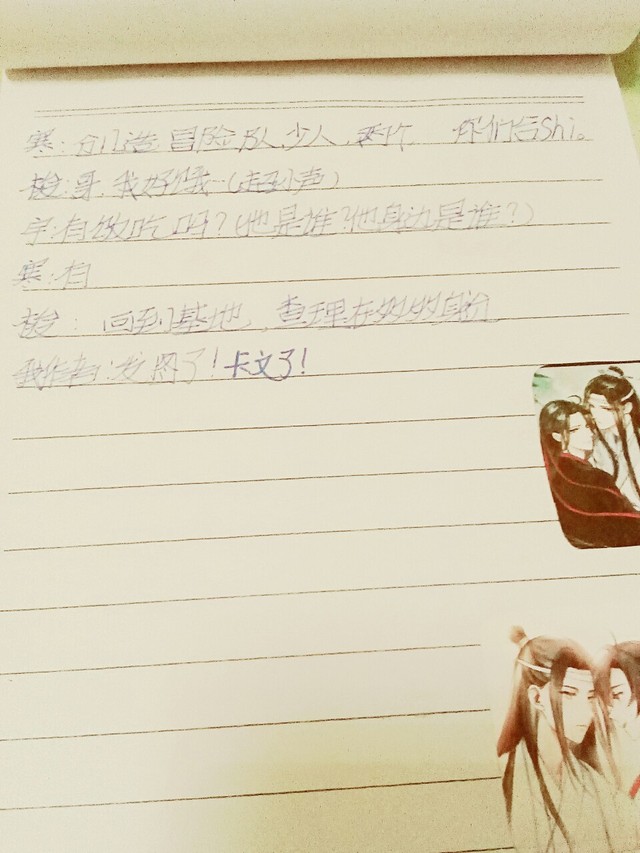 寒: 冒险队,少人, 你们合Shi。
梭:哥,我好饿…(超小声)
宇:有饭吃吗?(他是谁?他身边是谁?)
寒:有
梭: 回到基地,查理在奶奶身边
我作者:发图了!卡文了!